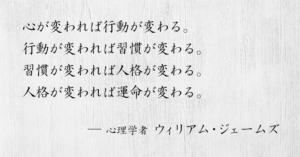 心が変われば行動が変わる。
行動が変われば習慣が変わる。
習慣が変われば人格が変わる。
人格が変われば運命が変わる。
― 心理学者 ウィリアム・ジェームズ